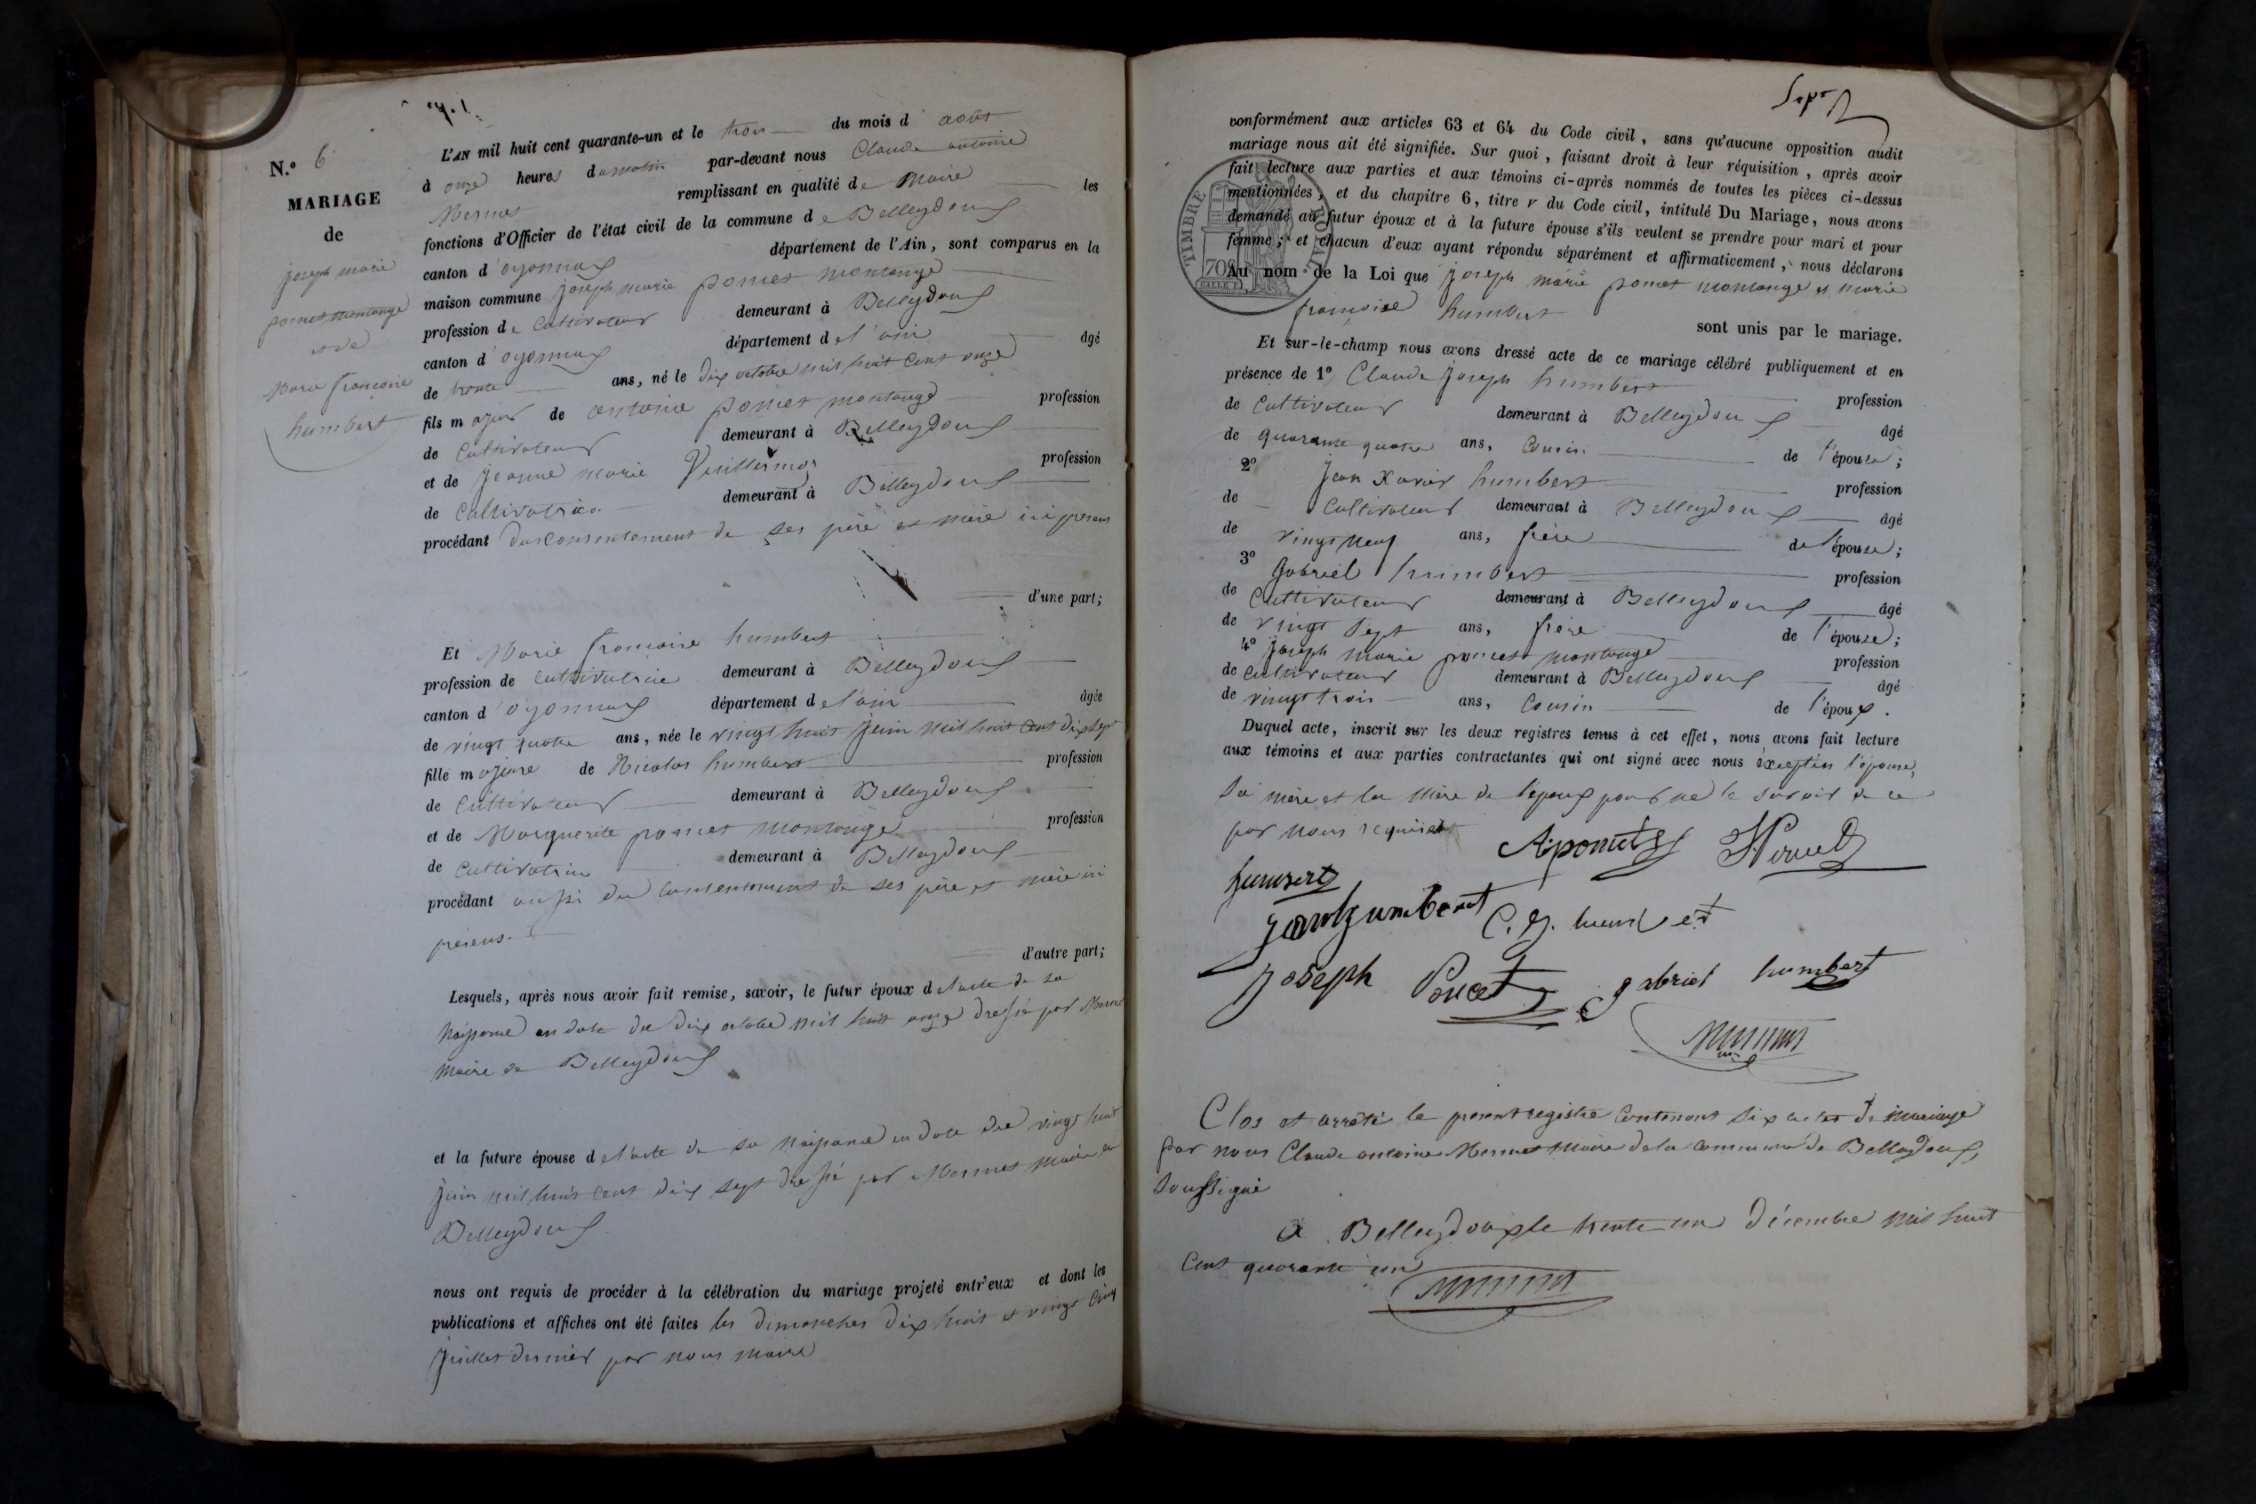 N.º 6
MARIAGE
de
joseph marie
poncet montange
et de
Marie francoise
humbert
L'AN mil huit cent quarante-un et le trois du mois d août
à onze heures du matin par-devant nous Claude antoine
Mermet remplissant en qualité de Maire les
fonctions d'Officier de l'état civil de la commune de Belleydoux
canton d'oyonnax département de l'Ain, sont comparus en la
maison commune joseph marie poncet montange
profession de Cultivateur demeurant à Belleydoux
canton d'oyonnax département de l'ain âgé
de trente ans, né le dix octobre mil huit cent onze
fils majeur de antoine poncet montange profession
de Cultivateur demeurant à Belleydoux
et de Jeanne marie Vuillermoz profession
de Cultivatrice demeurant à Belleydoux
procédant du consentement de ses père et mère ici présens
d'une part;
Et Marie francoise humbert
profession de cultivatrice demeurant à Belleydoux
canton d'oyonnax département de l'ain âgée
de vingt quatre ans, née le vingt huit Juin mil huit cent dix sept
fille majeure de Nicolas humbert profession
de Cultivateur demeurant à Belleydoux
et de Marguerite poncet montange profession
de Cultivatrice demeurant à Belleydoux
procédant aussi du consentement de ses père et mère ici
présens.
d'autre part;
Lesquels, après nous avoir fait remise, savoir, le futur époux de l'acte de sa
Naissance en date du dix octobre mil huit onze dressé par Mermet
Maire de Belleydoux
et la future épouse de l'acte de sa Naissance en date du vingt huit
Juin mil huit cent dix sept dressé par Mermet Maire de
Belleydoux
nous ont requis de procéder à la célébration du mariage projeté entr'eux et dont les
publications et affiches ont été faites les dimanches dix huit et vingt cinq
Juillet dernier par nous maire
Sept
conformément aux articles 63 et 64 du Code civil, sans qu'aucune opposition audit
mariage nous ait été signifiée. Sur quoi, faisant droit à leur réquisition, après avoir
fait lecture aux parties et aux témoins ci-après nommés de toutes les pièces ci-dessus
mentionnées, et du chapitre 6, titre v du Code civil, intitulé Du Mariage, nous avons
demandé au futur époux et à la future épouse s'ils veulent se prendre pour mari et pour
femme; et chacun d'eux ayant répondu séparément et affirmativement, nous déclarons
Au nom de la Loi que joseph marie poncet montange et marie
françoise humbert
sont unis par le mariage.
TIMBRE ROYAL
70
Et sur-le-champ nous avons dressé acte de ce mariage célébré publiquement et en
présence de 1º Claude Joseph humbert profession
de Cultivateur demeurant à Belleydoux âgé
de quarante quatre ans, Cousin de l'épouse;
2º Jean Xavier humbert profession
de Cultivateur demeurant à Belleydoux âgé
de vingt Neuf ans, frère de l'épouse;
3º Gabriel humbert profession
de Cultivateur demeurant à Belleydoux âgé
de vingt Sept ans, frère de l'épouse;
4º Joseph Marie poncet montange profession
de Cultivateur demeurant à Belleydoux âgé
de vingt trois ans, Cousin de l'époux.
Duquel acte, inscrit sur les deux registres tenus à cet effet, nous avons fait lecture
aux témoins et aux parties contractantes qui ont signé avec nous exceptés l'épouse,
Sa mère et la Mère de l'époux pour ne le savoir de ce
par nous requises
humbert
C. J. humbert
Joseph Poncet
gabriel humbert
Clos et arrêté le present registre Contenant Six actes de Mariage
par nous Claude antoine Mermet Maire de la commune de Belleydoux,
Soussigné
a Belleydoux le trente un Décembre mil huit
Cent quarante un